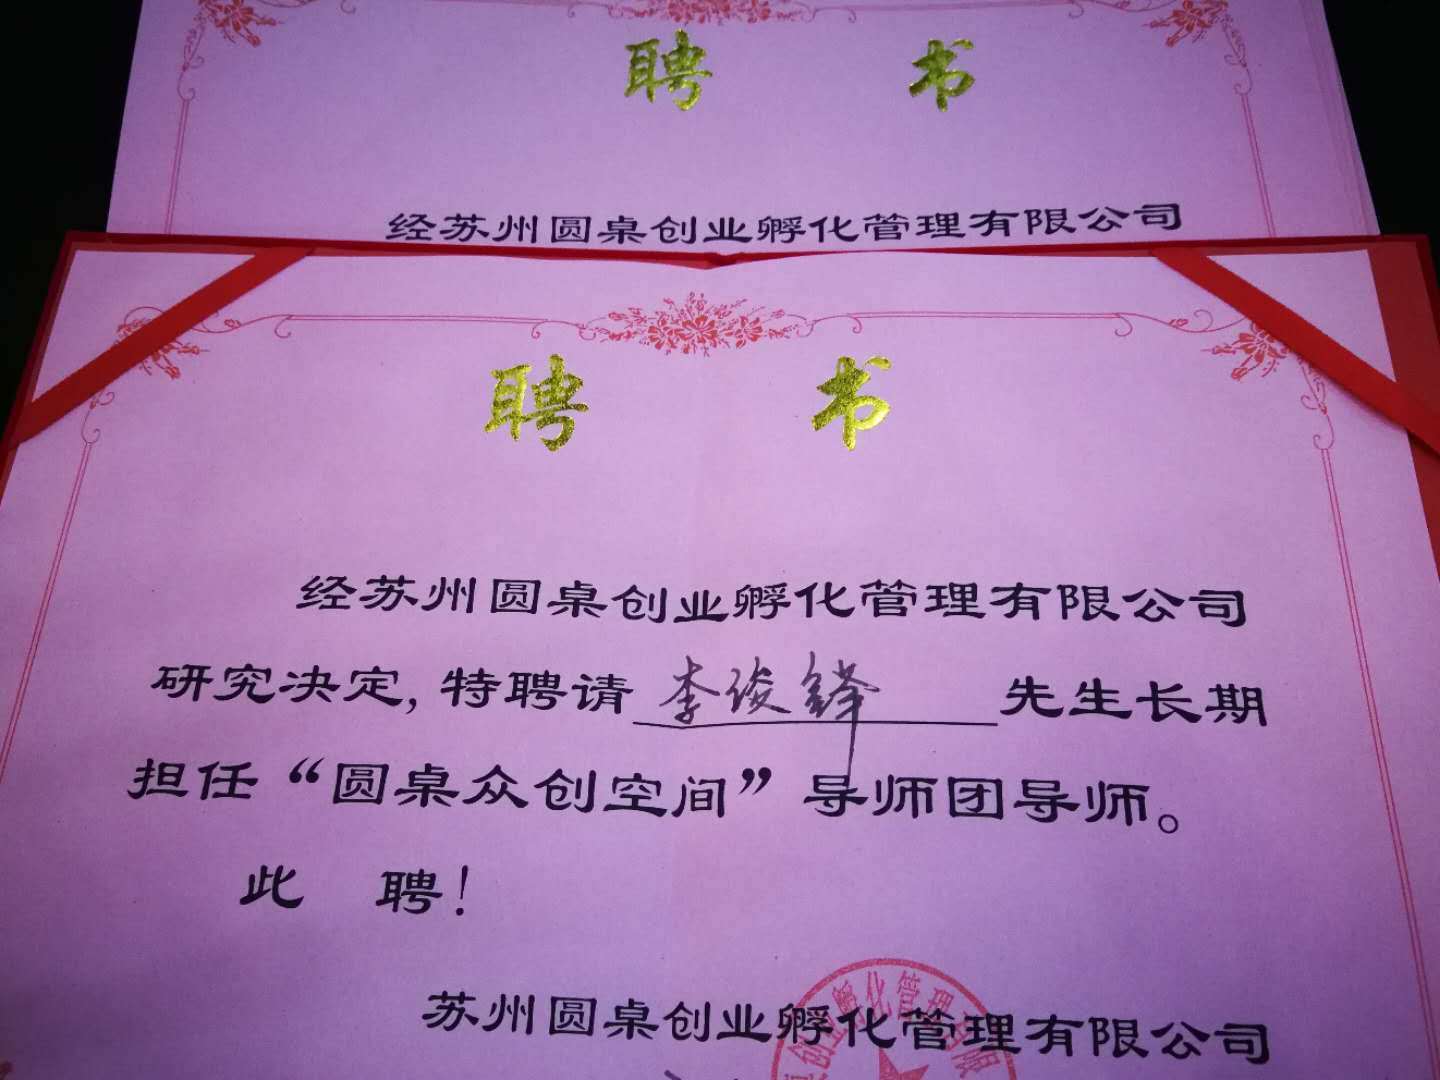 聘 书
经苏州圆桌创业孵化管理有限公司
聘 书
经苏州圆桌创业孵化管理有限公司
研究决定，特聘请 李俊铎 先生长期
担任“圆桌众创空间”导师团导师。
此 聘！
苏州圆桌创业孵化管理有限公司
创业孵化管理有限